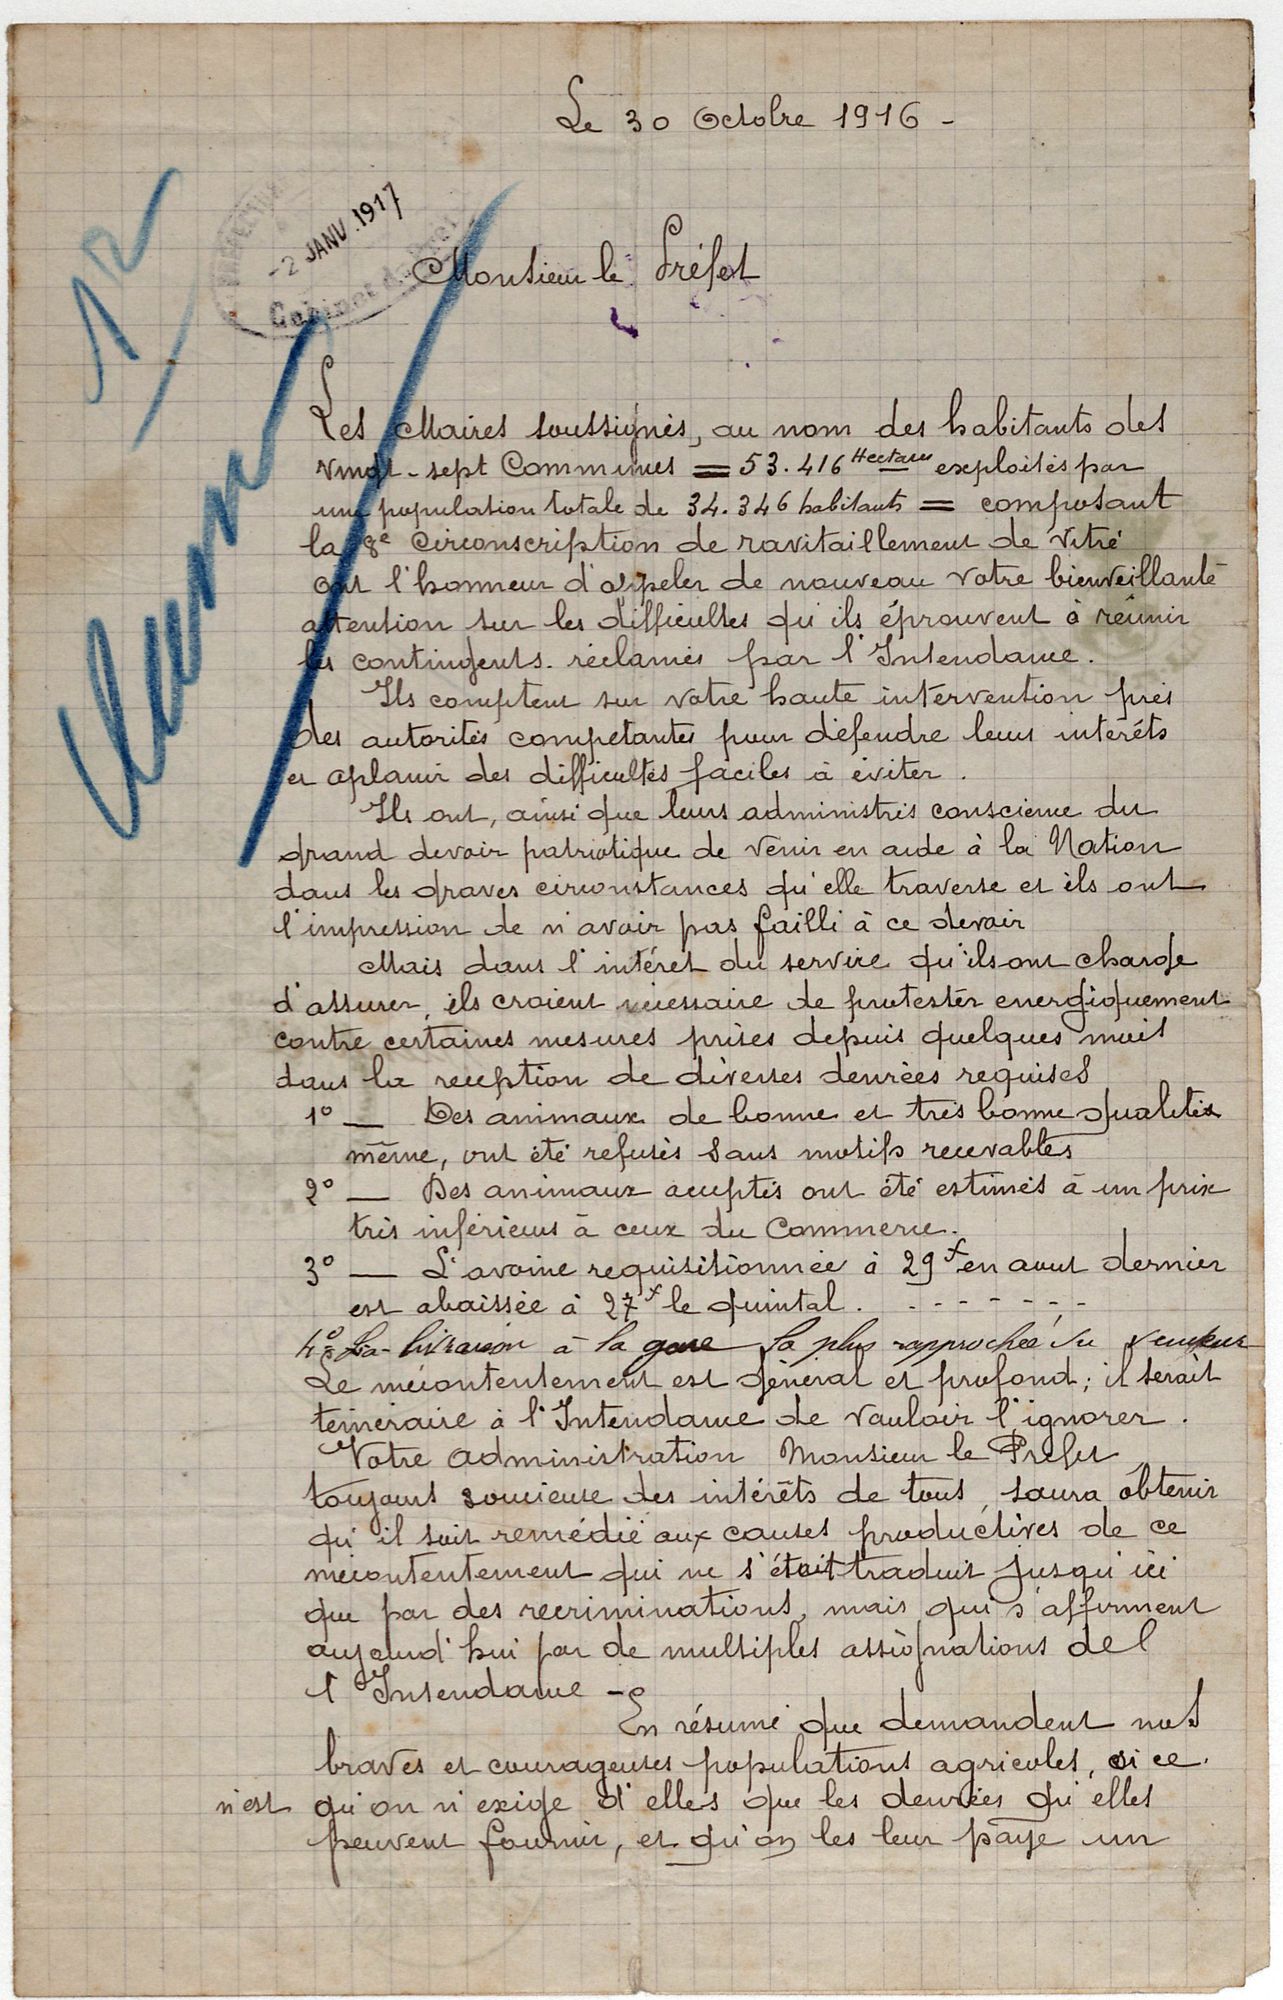 Le 30 Octobre 1916 -
12
-2 JANV. 1917
Cabinet du
Monsieur le Préfet
Les Maires soussignés, au nom des habitants des
vingt-sept Communes = 53.416 Hectares exploités par
une population totale de 34.346 habitants = composant
la 8e Circonscription de ravitaillement de Vitré
ont l'honneur d'appeler de nouveau votre bienveillante
attention sur les difficultés qu'ils éprouvent à réunir
les contingents réclamés par l'Intendance.
Ils comptent sur votre haute intervention près
des autorités compétantes pour défendre leurs intérêts
et aplanir des difficultés faciles à éviter.
Ils ont, ainsi que leurs administrés conscience du
grand devoir patriotique de venir en aide à la Nation
dans les graves circonstances qu'elle traverse et ils ont
l'impression de n'avoir pas failli à ce devoir
Mais dans l'intéret du service qu'ils ont charge
d'assurer, ils croient nécessaire de protester energiquement
contre certaines mesures prises depuis quelques mois
dans la reception de diverses denrées requises
1° — Des animaux de bonne et très bonne qualités
même, ont été refusés sans motifs recevables
2° — Des animaux acceptés ont été estimés à un prix
très inférieurs à ceux du Commerce.
3° — L'avoine requisitionnée à 29f en aout dernier
est abaissée à 27f le quintal. - - - - - - -
4° La livraison à la gare la plus rapprochée du vendeur
Le mécontentement est général et profond; il serait
téméraire à l'Intendance de vouloir l'ignorer.
Votre administration Monsieur le Préfet
toujours soucieuse des intérêts de tous, saura obtenir
qu'il soit remédié aux causes productives de ce
mécontentement qui ne s'était traduit jusqu'ici
que par des recriminations, mais qui s'affirment
aujourd'hui par de multiples assignations de l
l'Intendance -
En résumé que demandent nos
braves et courageuses populations agricoles, si ce
n'est qu'on n'exige d'elles que les denrées qu'elles
peuvent fournir, et qu'on les leur paye un